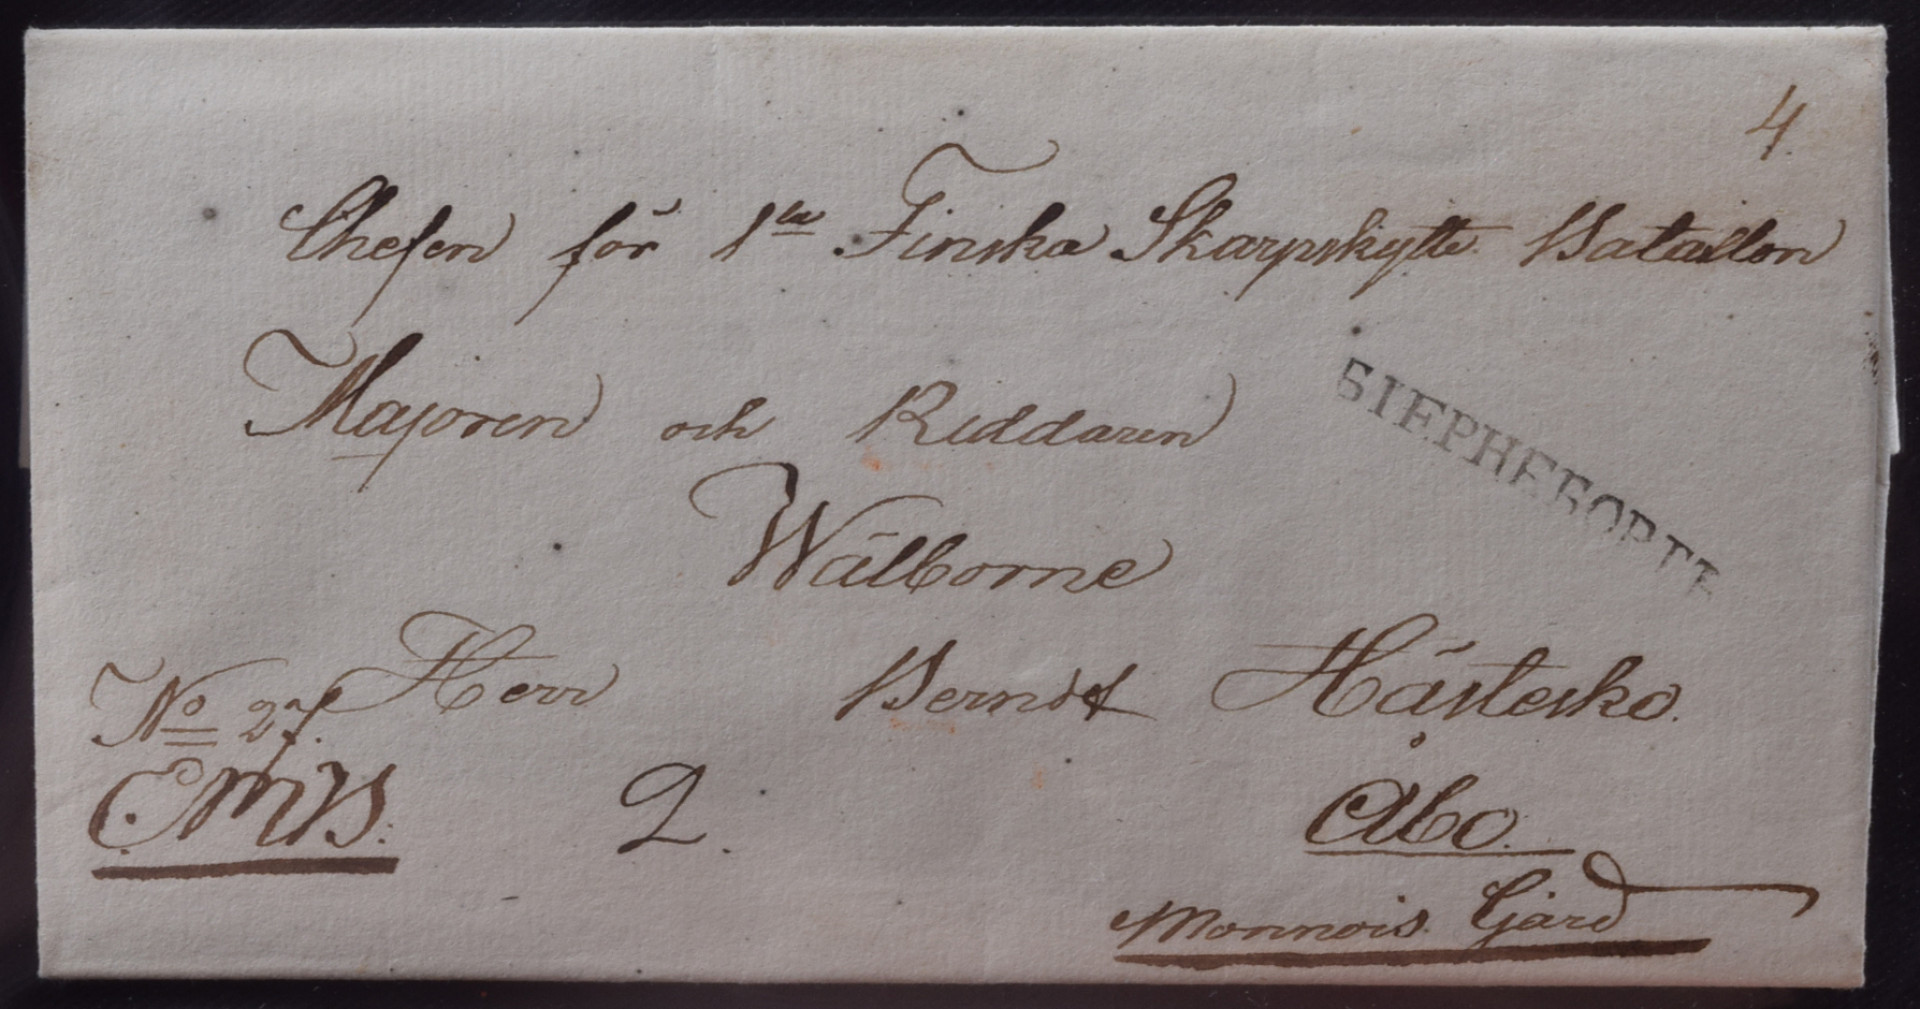 4.
Chefen för 1sta Finska Skarpskytte Bataillon
Majoren och Riddaren
БІЕРНЕБОРГЪ
Wälborne
Herr Berndt Hästesko.
No 27.
EMB. 2.
Åbo.
Monnois Gård